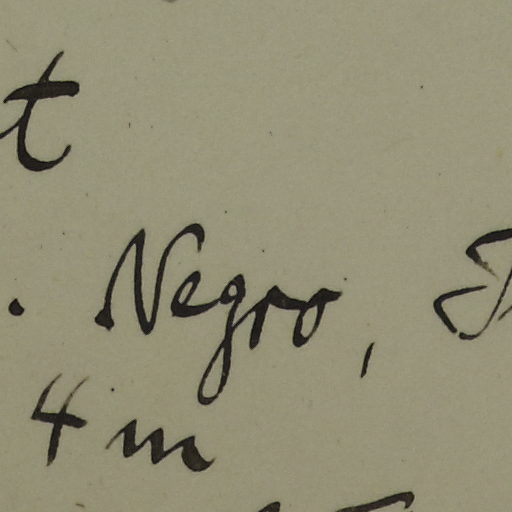 t
. Negro,
4 m